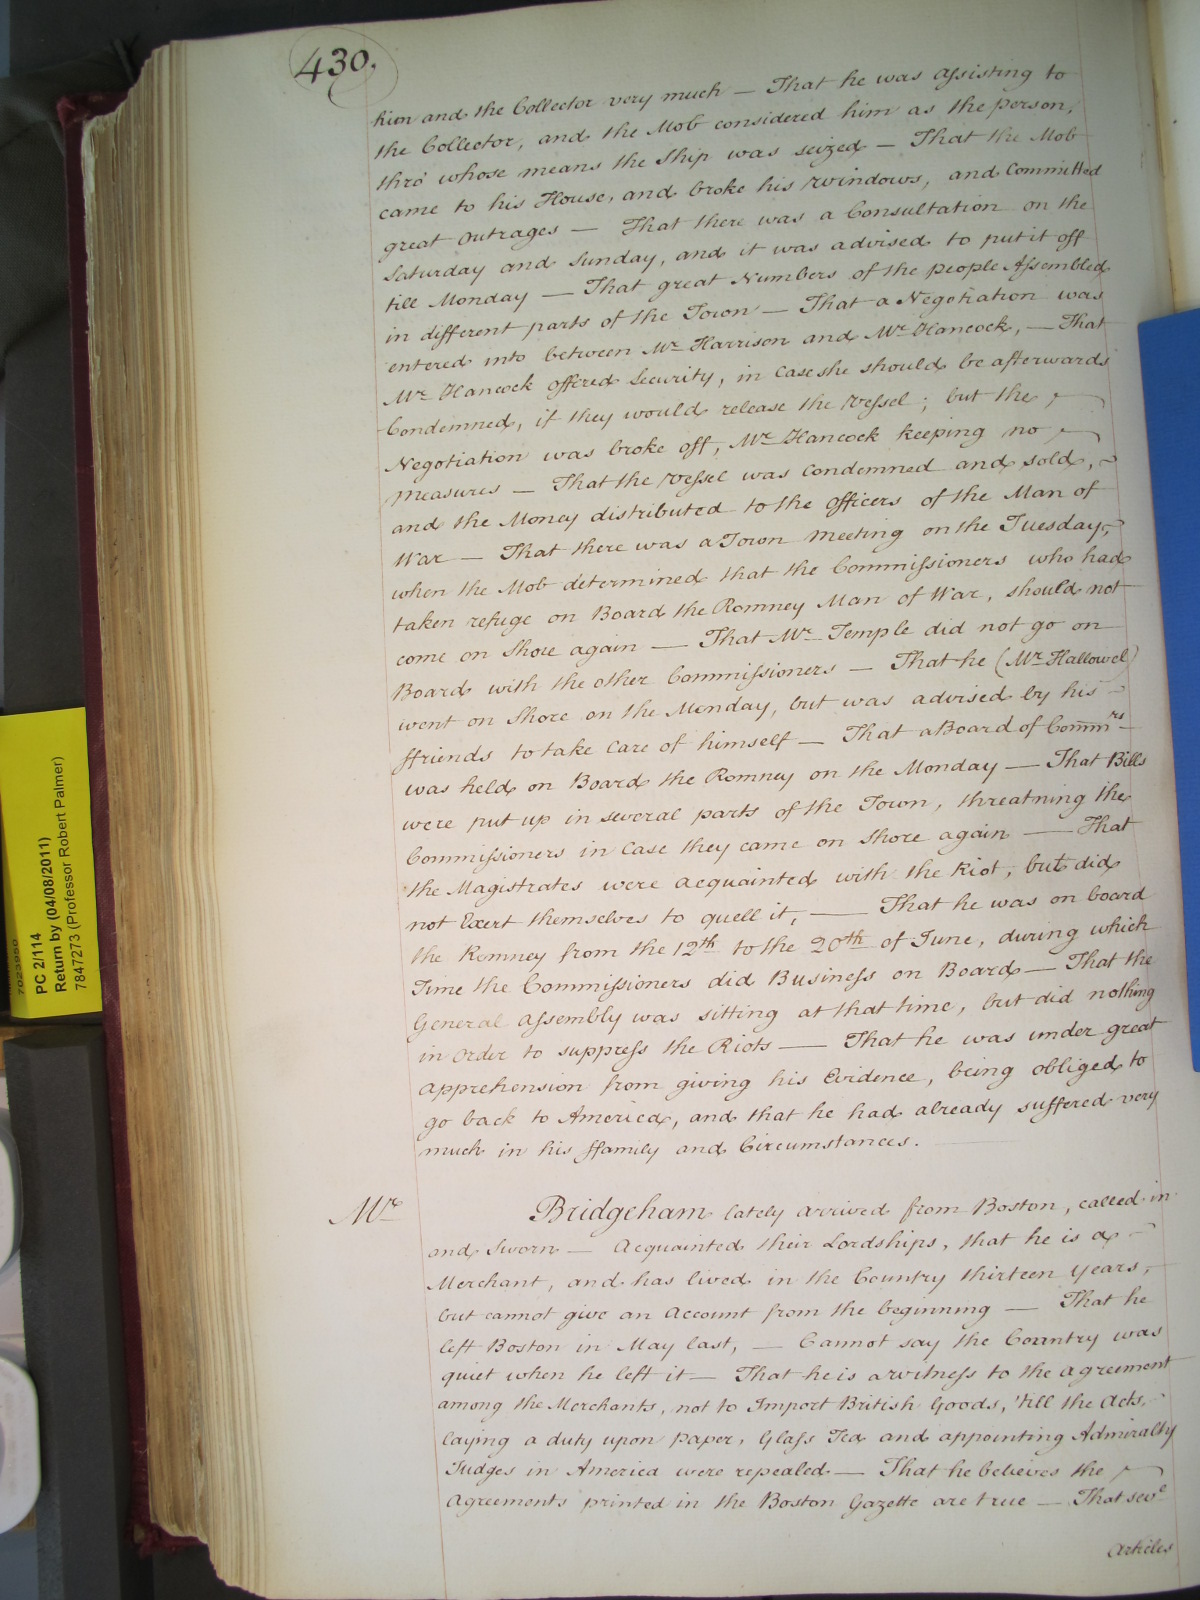 430.
him and the Collector very much — That he was assisting to
the Collector, and the Mob considered him as the person,
thro' whose means the Ship was seized — That the Mob
came to his House, and broke his Windows, and Committed
great Outrages — That there was a Consultation on the
Saturday and Sunday, and it was advised to put it off
till Monday — That great Numbers of the people Assembled
in different parts of the Town — That a Negotiation was
entered into between Mr Harrison and Mr Hancock, — That
Mr Hancock offered Security, in Case she should be afterwards
Condemned, if they would release the Vessel; but the
Negotiation was broke off, Mr Hancock keeping no
measures — That the Vessel was Condemned and sold,
and the Money distributed to the Officers of the Man of
War — That there was a Town Meeting on the Tuesday,
when the Mob determined that the Commissioners who had
taken refuge on Board the Romney Man of War, should not
come on Shore again — That Mr Temple did not go on
Board with the other Commissioners — That he (Mr Hallowel)
went on Shore on the Monday, but was advised by his
ffriends to take Care of himself — That a Board of Commrs
was held on Board the Romney on the Monday — That Bills
were put up in several parts of the Town, threatning the
Commissioners in Case they came on Shore again — That
the Magistrates were acquainted with the Riot, but did
not Exert themselves to quell it, — That he was on board
the Romney from the 12th to the 20th of June, during which
Time the Commissioners did Business on Board — That the
General Assembly was sitting at that time, but did nothing
in Order to suppress the Riots — That he was under great
Apprehension from giving his Evidence, being obliged to
go back to America, and that he had already suffered very
much in his ffamily and Circumstances.
Mr Bridgeham lately arrived from Boston, called in
and Sworn — Acquainted their Lordships, that he is a
Merchant, and has lived in the Country thirteen years,
but cannot give an Account from the beginning — That he
left Boston in May last, — Cannot say the Country was
quiet when he left it — That he is a Witness to the Agreement
among the Merchants, not to Import British Goods, 'till the Acts,
laying a duty upon paper, Glass Tea and appointing Admiralty
Judges in America were repealed — That he believes the
Agreements printed in the Boston Gazette are true — That sevl
Articles
PC 2/114
Return by (04/08/2011)
7847273 (Professor Robert Palmer)